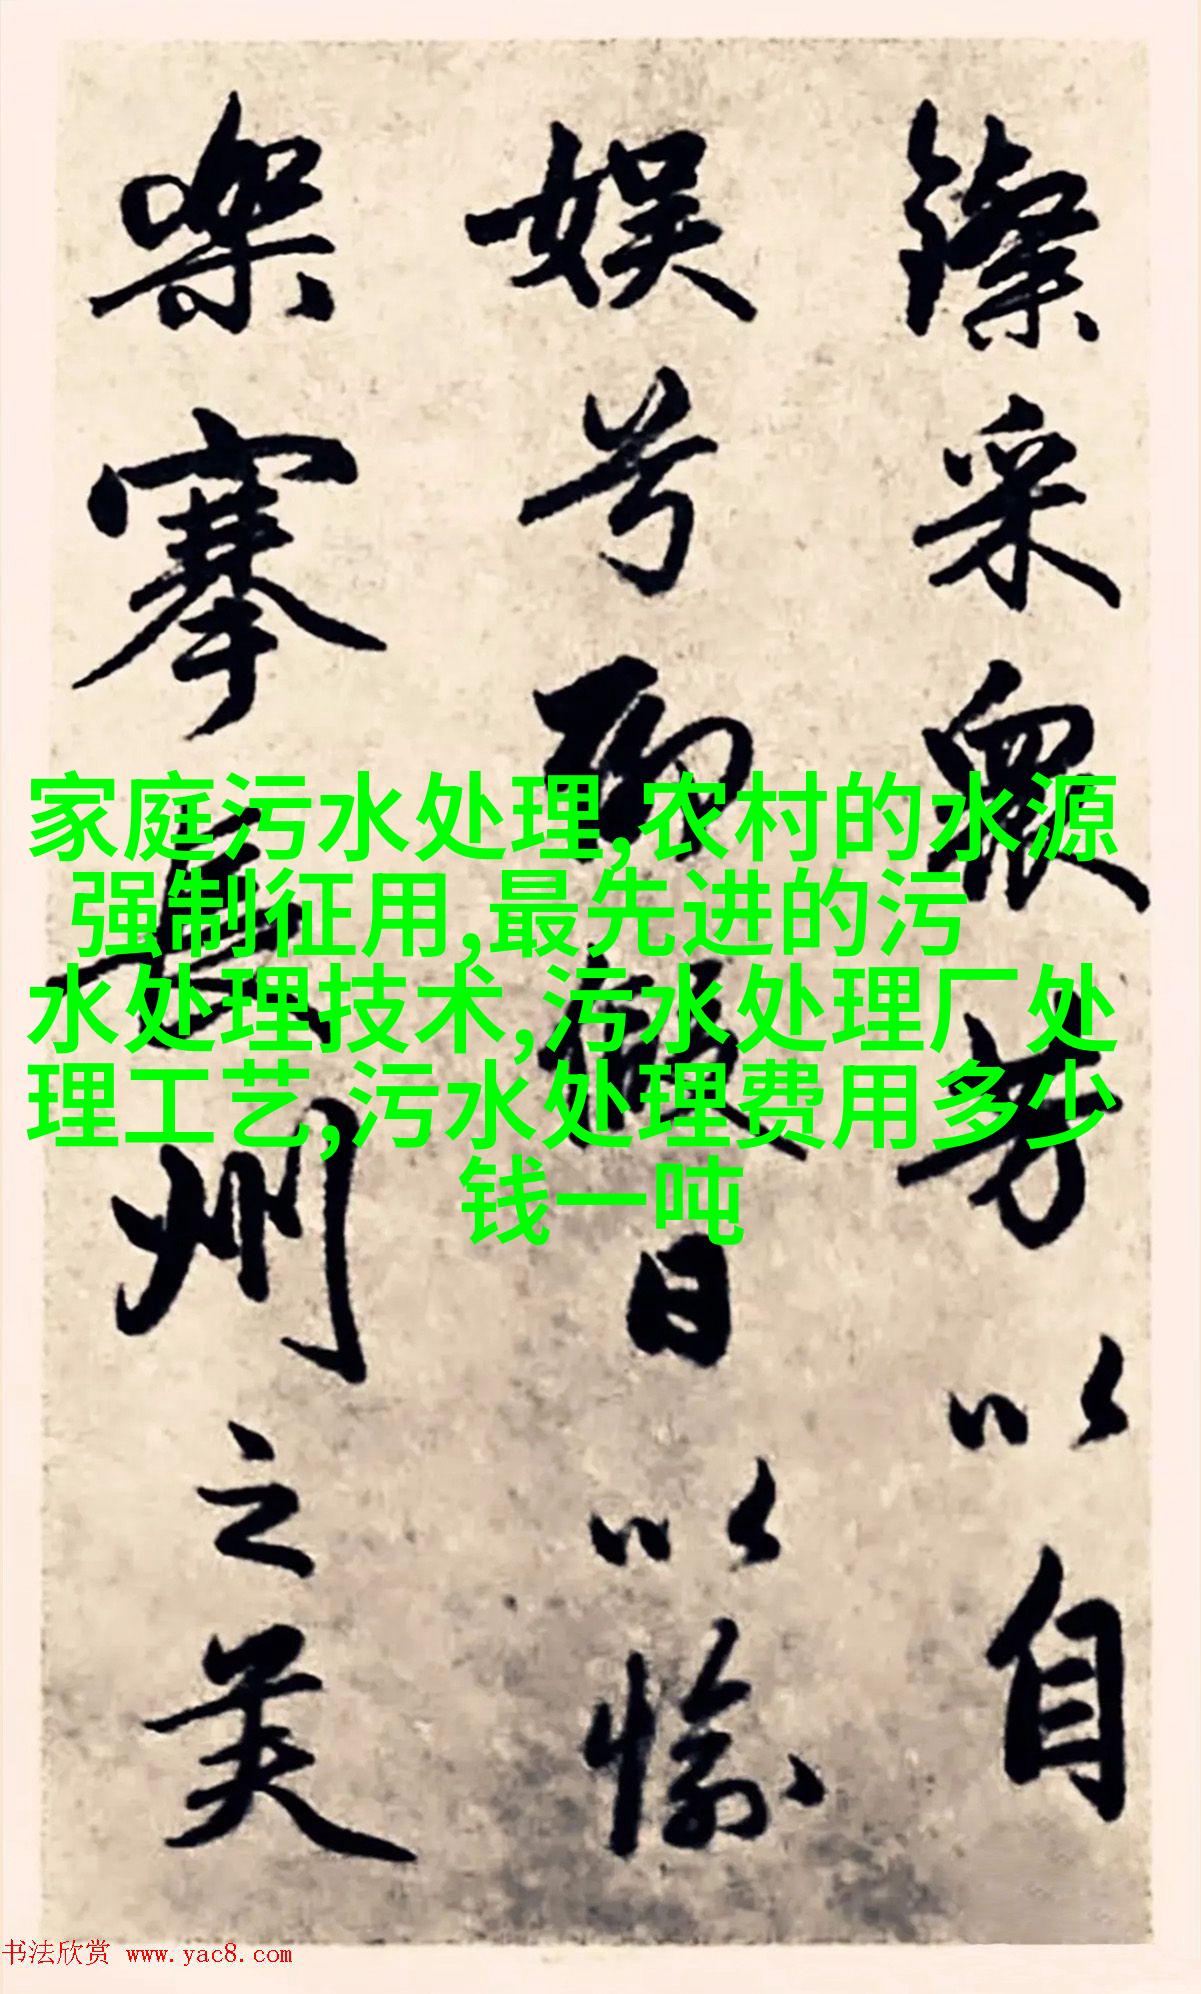 采眾芳以自
娛兮聊假日以愉
樂搴長洲之美
家庭污水处理,农村的水源
强制征用,最先进的污
水处理技术,污水处理厂处
理工艺,污水处理费用多少
钱一吨
书法欣赏 www.yac8.com